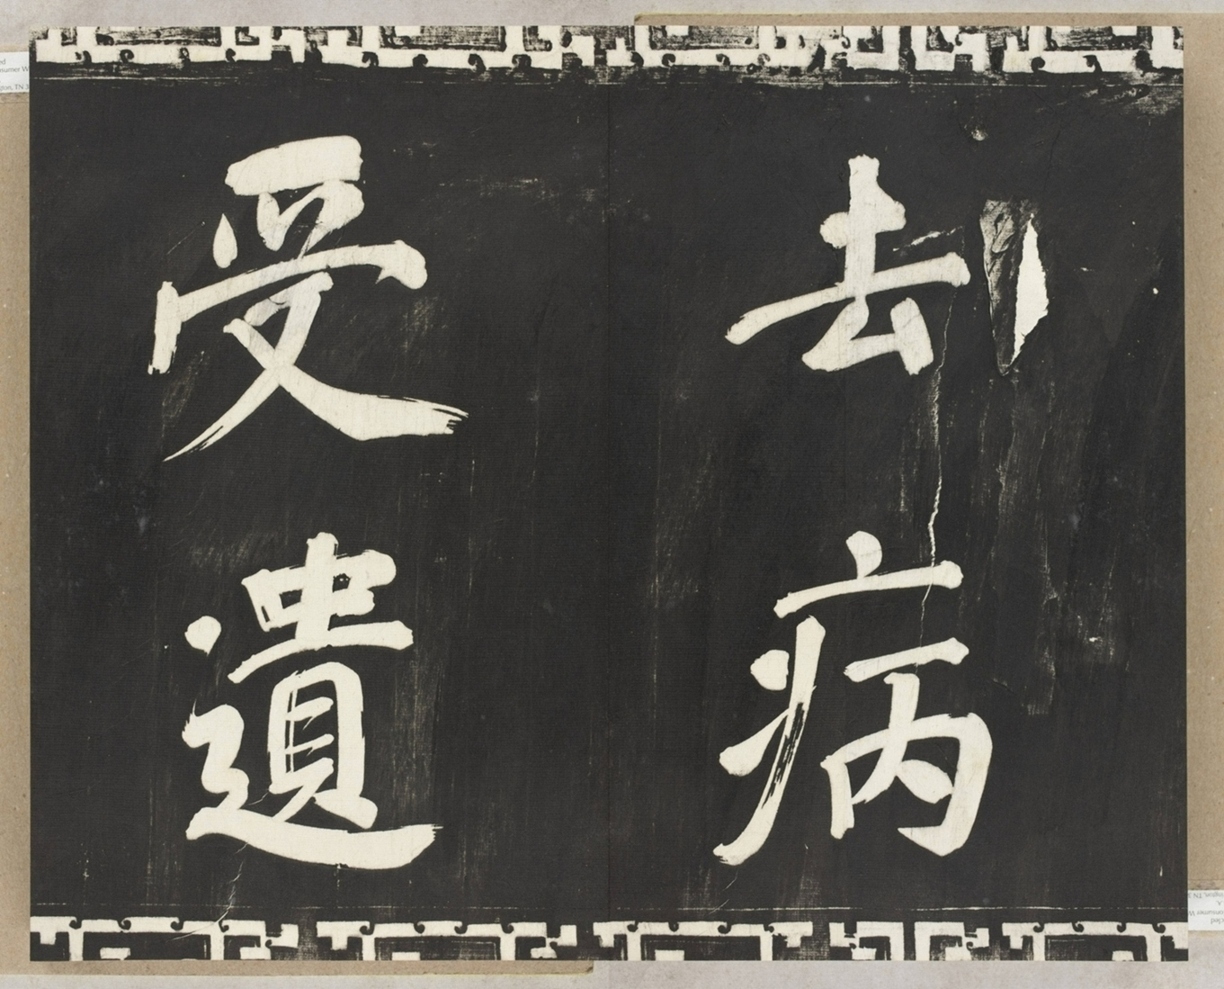 去病
受遺